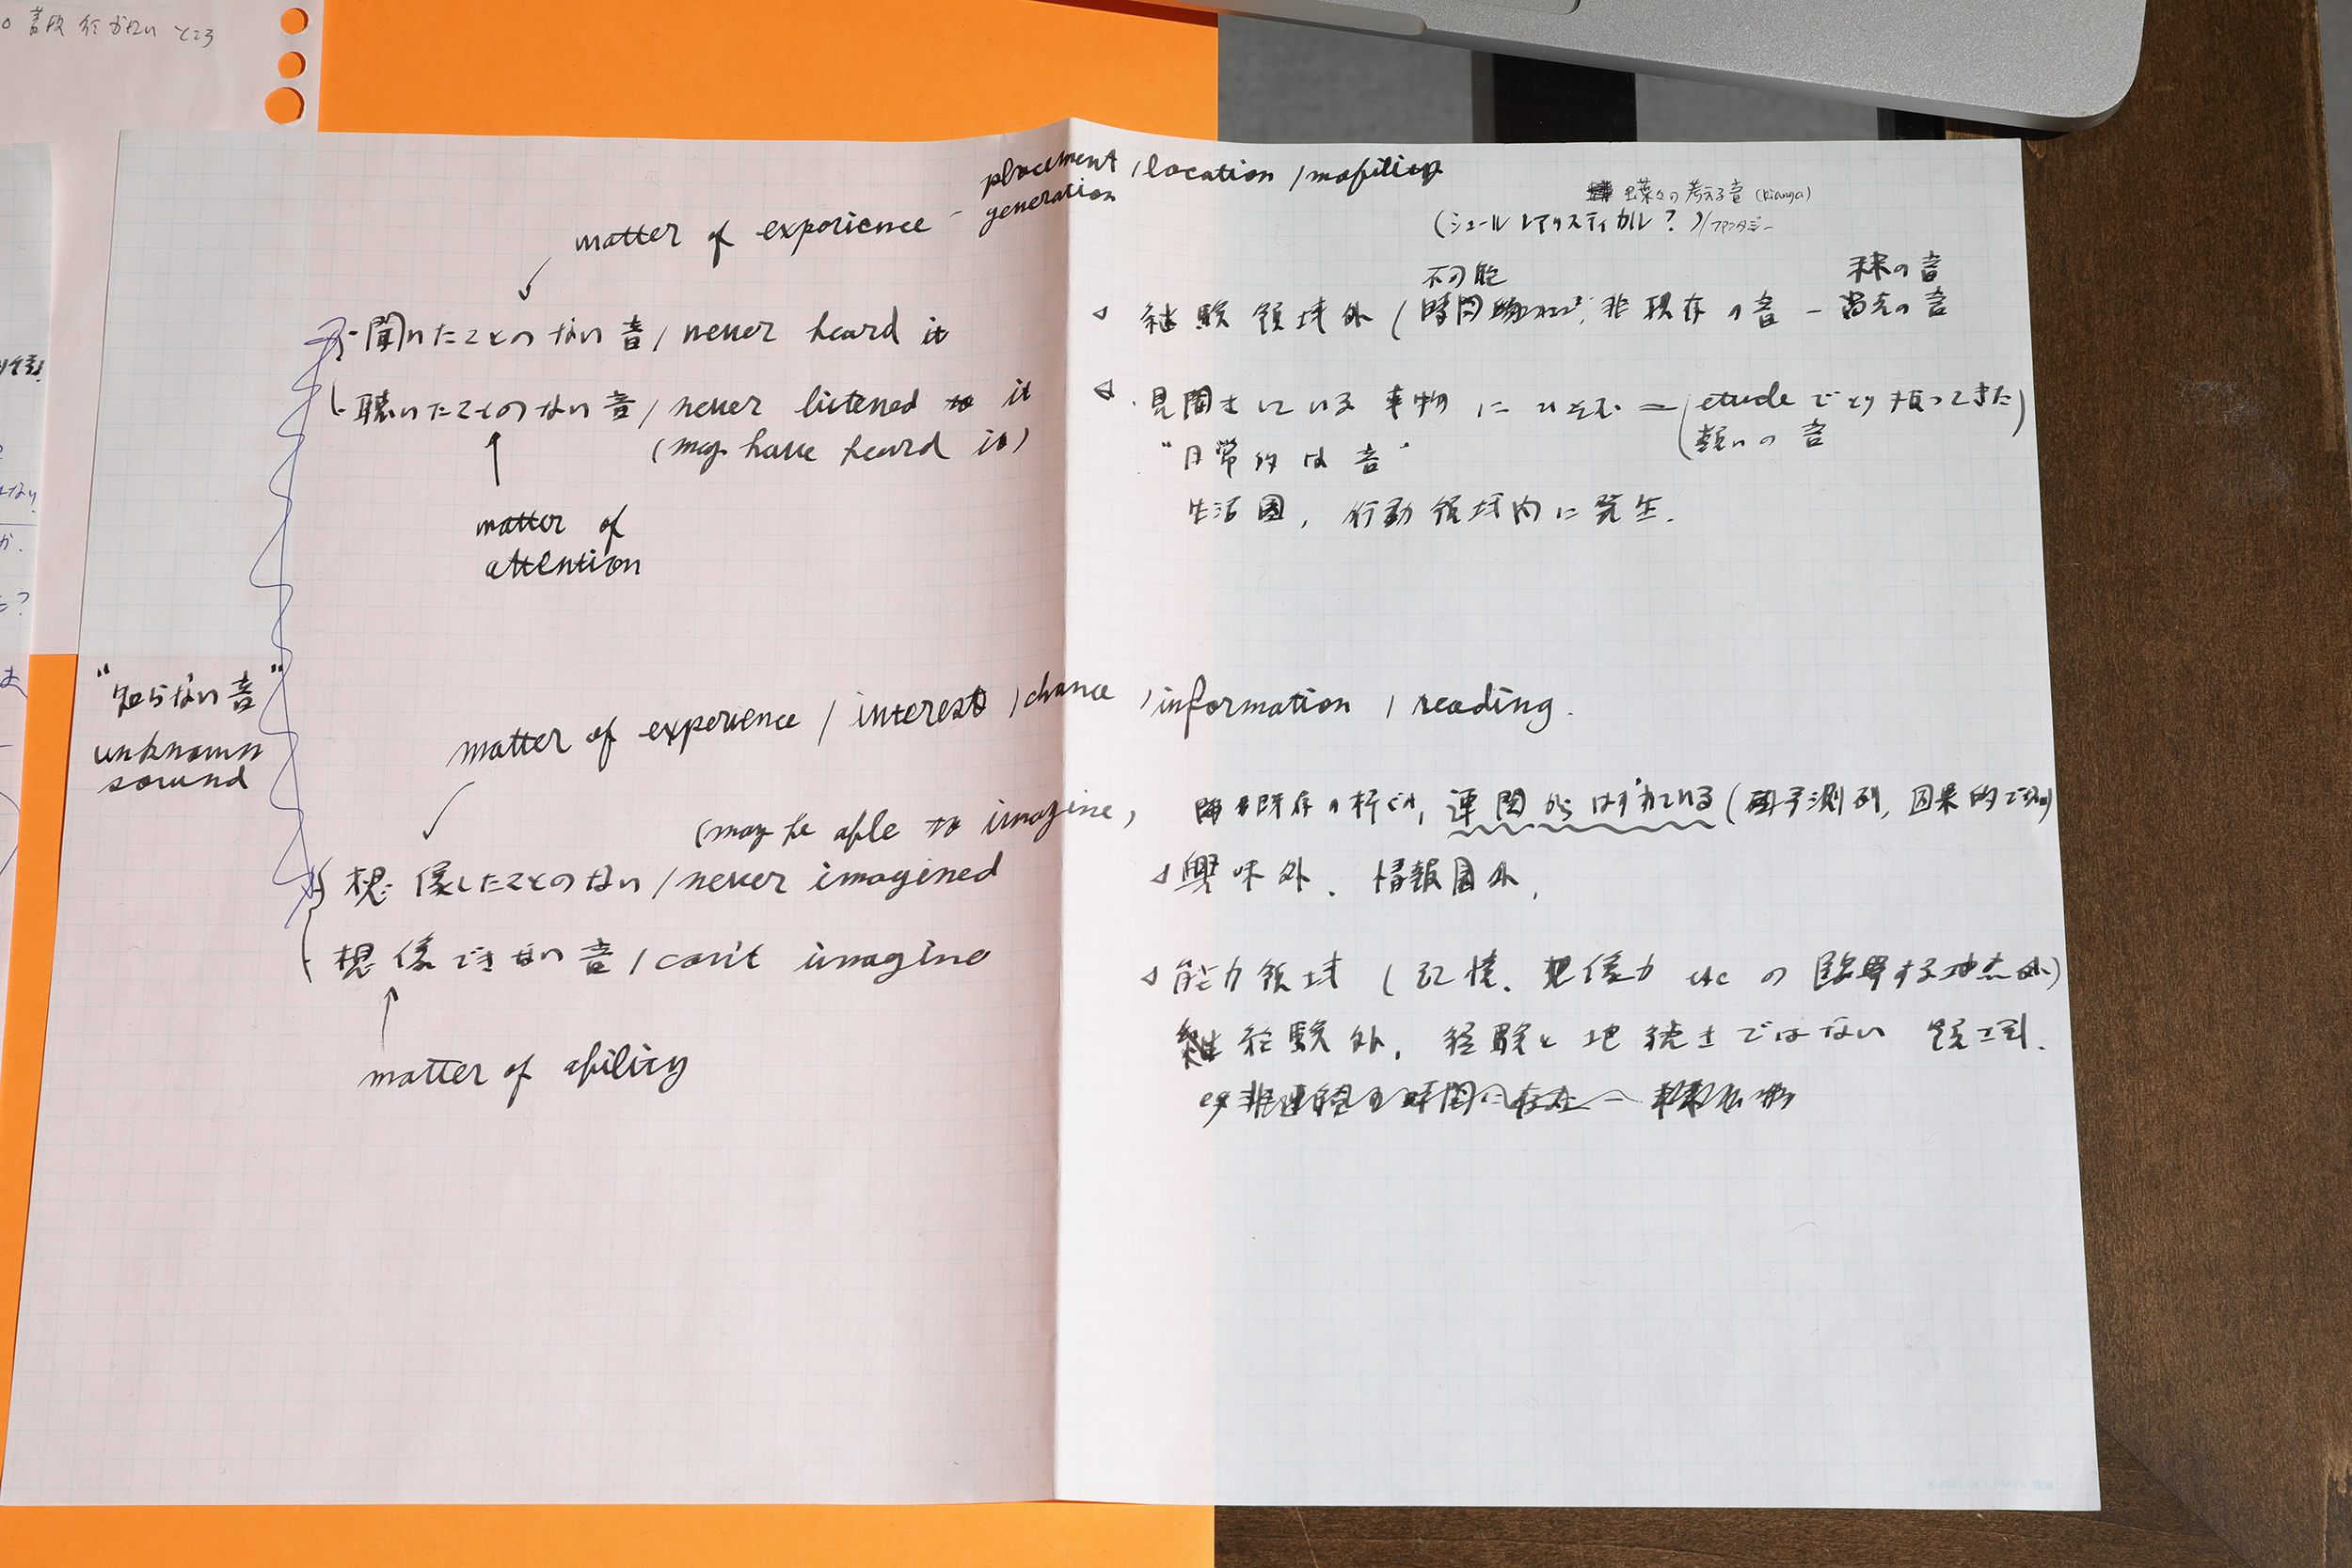 普段行かないところ
placement / location / mobility
generation
matter of experience -
蝶々の考える音 (Kianga)
(シュールレアリスティカル？)/ファンタジー
不可能
未来の音
経験領域外 ( 時間 非現存の音 - 過去の音
・聞いたことのない音 / never heard it
・聴いたことのない音 / never listened to it
(may have heard it)
見聞きしている事物にひそむ = (etudeでとり扱ってきた
類いの音)
"日常的な音"
生活圏, 行動領域内に発生.
matter of
attention
"知らない音"
unknown
sound
matter of experience / interest / chance / information / reading.
(may be able to imagine)
既存の 連関からはずれている ( 予測 因果的
想像したことのない / never imagined
興味外、情報圏外,
想像できない音 / can't imagine
能力領域 (記憶、想像力 etc の臨界する地点外)
経験外, 経験と地続きではない領域.
matter of ability
eg 非連続の時間に存在